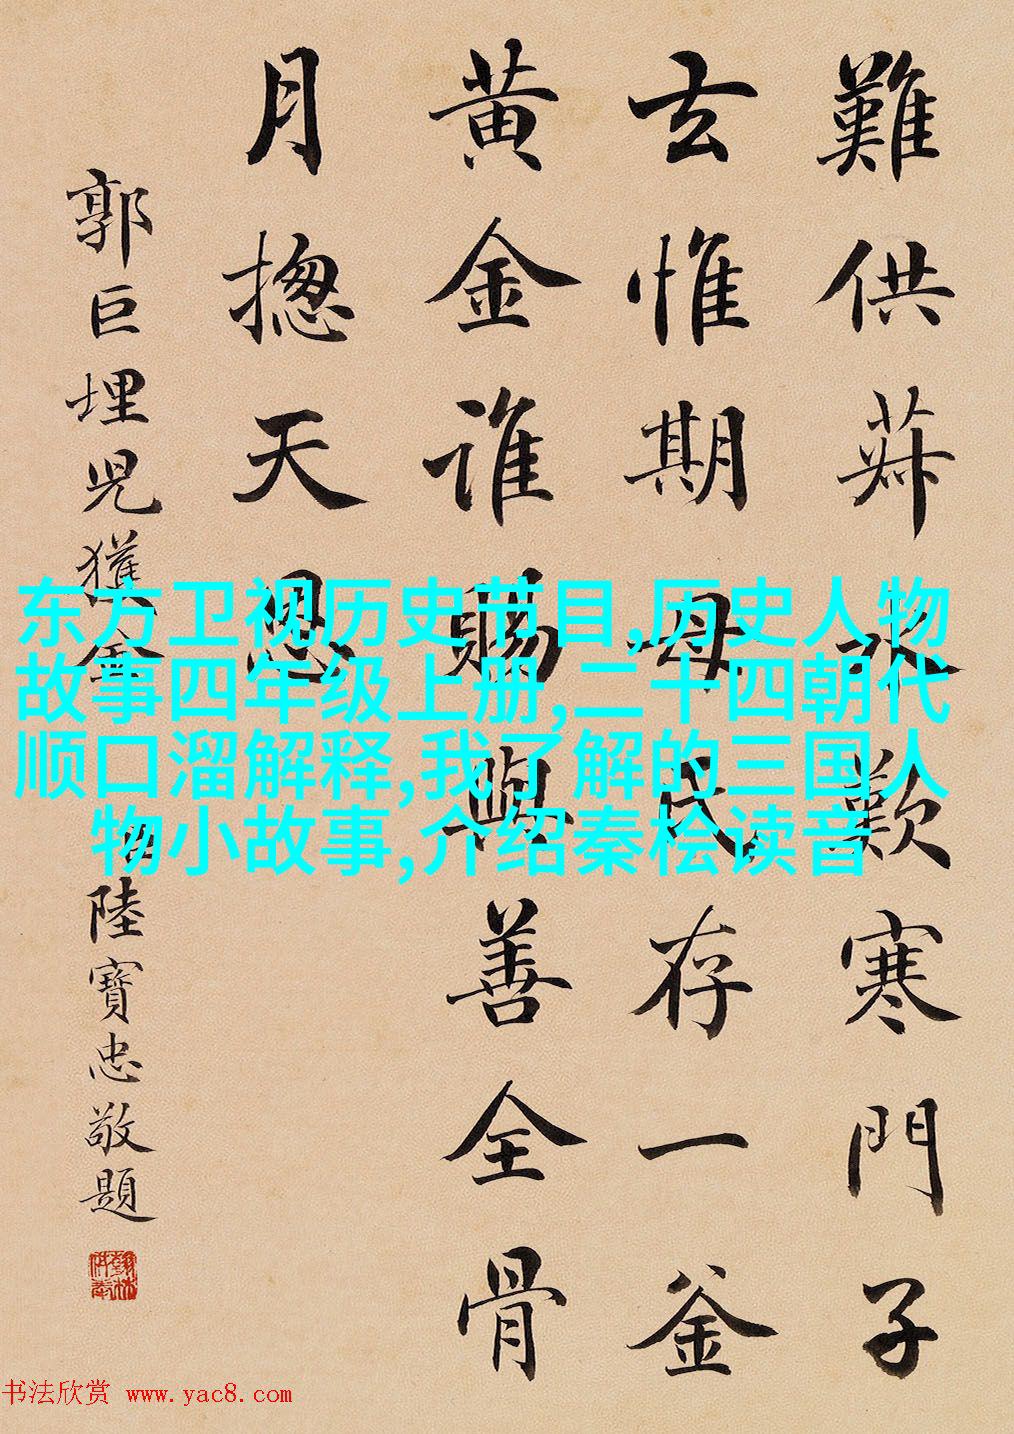 難供菽水歎寒門子
玄惟期母氏存一釜
黄金谁賜與善全骨
月揔天恩
郭巨埋児獲金
陸寶忠敬題
东方卫视历史节目,历史人物
故事四年级上册,二十四朝代
顺口溜解释,我了解的三国人
物小故事,介绍秦桧读音
书法欣赏 www.yac8.com